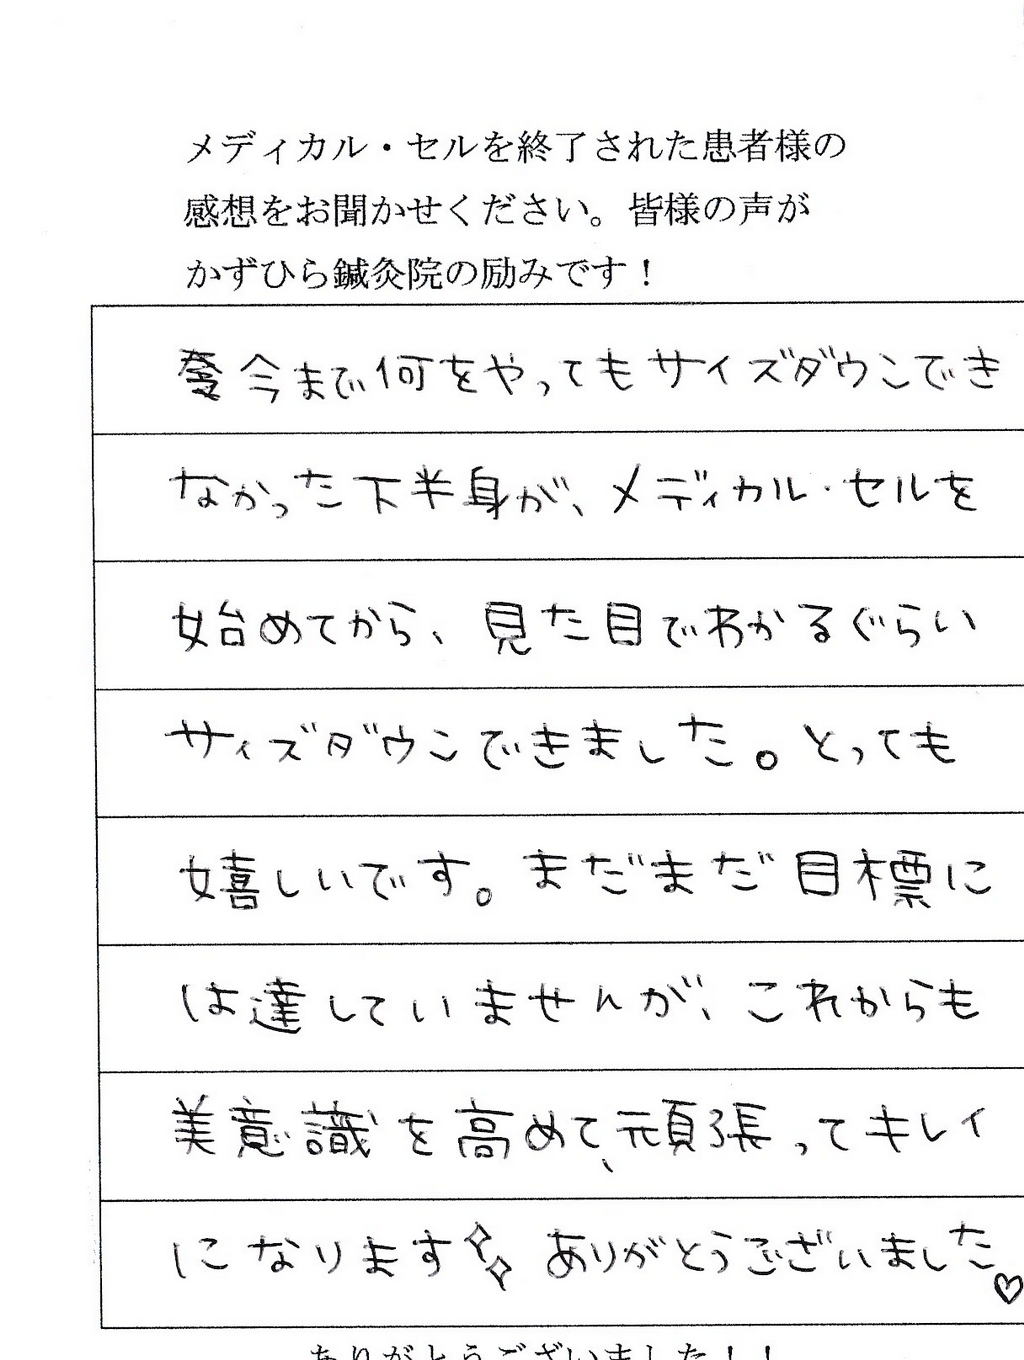 メディカル・セルを終了された患者様の
感想をお聞かせください。皆様の声が
かずひら鍼灸院の励みです！
今まで何をやってもサイズダウンでき
なかった下半身が、メディカル・セルを
始めてから、見た目でわかるぐらい
サイズダウンできました。とっても
嬉しいです。まだまだ目標に
は達していませんが、これからも
美意識を高めて、頑張ってキレイ
になります✨ ありがとうございました♡
ありがとうございました！！